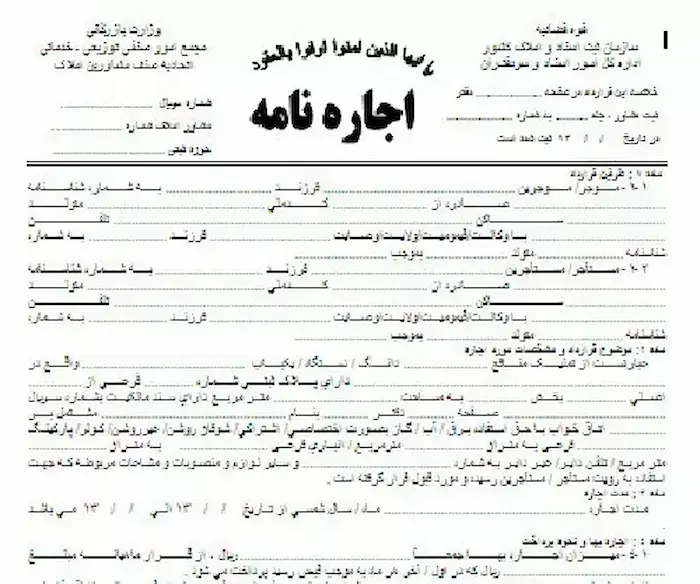 قوه قضائیه
سازمان ثبت اسناد و املاک کشور
اداره کل امور اسناد و سردفتران
خلاصه این قرارداد در صفحه ............ دفتر
ثبت مشاور ، جلد ...... به شماره ............
در تاریخ / / ۱۳ ثبت شده است
یا ایها الذین آمنوا اوفوا بالعقود
اجاره نامه
وزارت بازرگانی
مجمع امور صنفی توزیعی - خدماتی
اتحادیه صنف مشاورین املاک
شماره سریال ............
مشاور املاک شماره ............
حوزه ثبتی ............
ماده ۱ : طرفین قرارداد
۱-۱- موجر/ موجرین ............ فرزند ............ به شماره شناسنامه
............ صادره از ............ کدملی ............ متولد
............ ساکن ............ تلفن
............ با وکالت/قیومیت/ولایت/وصایت ............ فرزند ............ به شماره
شناسنامه ............ متولد ............ بموجب ............
۱-۲- مستأجر/ مستأجرین ............ فرزند ............ به شماره شناسنامه
............ صادره از ............ کدملی ............ متولد
............ ساکن ............ تلفن
............ با وکالت/قیومیت/ولایت/وصایت ............ فرزند ............ به شماره
شناسنامه ............ متولد ............ بموجب ............
ماده ۲ : موضوع قرارداد و مشخصات مورد اجاره
عبارتست از تملیک منافع ............ دانگ / دستگاه / یکباب ............ واقع در
............ دارای پلاک ثبتی شماره ............ فرعی از ............
اصلی ............ بخش ............ به مساحت ............ متر مربع دارای سند مالکیت بشماره سریال
............ صفحه ............ دفتر ............ بنام ............ مشتمل بر
............ اتاق خواب با حق استفاده برق / آب / گاز بصورت اختصاصی/ اشتراکی/ شوفاژ روشن/ غیرروشن/ کولر/ پارکینگ
............ فرعی به متراژ ............ مترمربع / انباری فرعی ............ به متراژ ............
متر مربع / تلفن دایر/ غیر دایر به شماره ............ و سایر لوازم و منصوبات و مشاعات مربوطه که جهت
استفاده به رویت مستأجر / مستأجرین رسیده و مورد قبول قرار گرفته است .
ماده ۳ : مدت اجاره
مدت اجاره ............ ماه / سال شمسی از تاریخ / / ۱۳ الی / / ۱۳ می باشد
ماده ۴ : اجاره بها و نحوه پرداخت
۴-۱- میزان اجاره بها جمعاً ............ ریال ، از قرار ماهیانه مبلغ
............ ریال که در اول / آخر هر ماه به موجب قبض رسید پرداخت می شود .